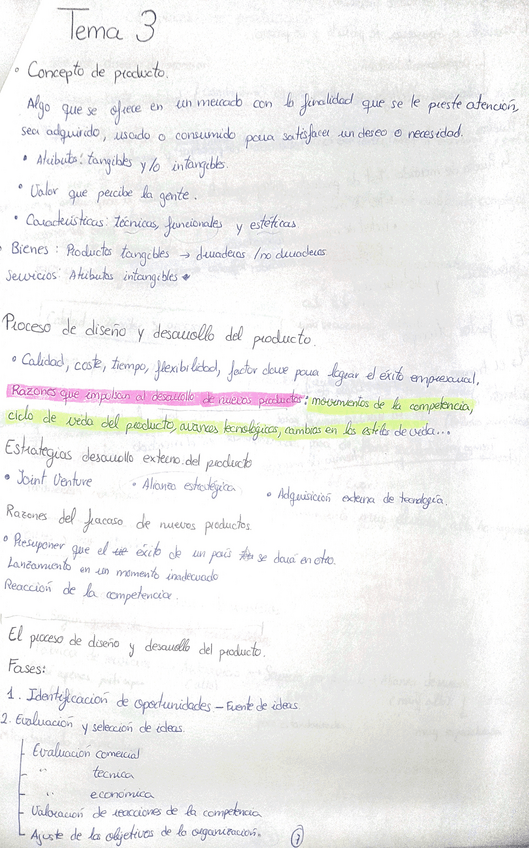 Tema 3
• Concepto de producto.
Algo que se ofrece en un mercado con la finalidad que se le preste atención,
sea adquirido, usado o consumido para satisfacer un deseo o necesidad.
• Atributos: tangibles y/o intangibles.
• Valor que percibe la gente.
• Características: técnicas, funcionales y estéticas
• Bienes: Productos tangibles → duraderos / no duraderos
Servicios: Atributos intangibles
Proceso de diseño y desarrollo del producto.
• Calidad, coste, tiempo, flexibilidad, factor clave para lograr el éxito empresarial.
Razones que impulsan al desarrollo de nuevos productos: movimientos de la competencia,
ciclo de vida del producto, avances tecnológicos, cambios en los estilos de vida...
Estrategias desarrollo externo del producto
• Joint Venture • Alianza estratégica • Adquisición externa de tecnología.
Razones del fracaso de nuevos productos
• Presuponer que el éxito de un país se dará en otro.
Lanzamiento en un momento inadecuado
Reacción de la competencia.
El proceso de diseño y desarrollo del producto.
Fases:
1. Identificación de oportunidades – Fuente de ideas
2. Evaluación y selección de ideas.
Evaluación comercial
" técnica
" económica
Valoración de reacciones de la competencia
Ajuste de los objetivos de la organización.